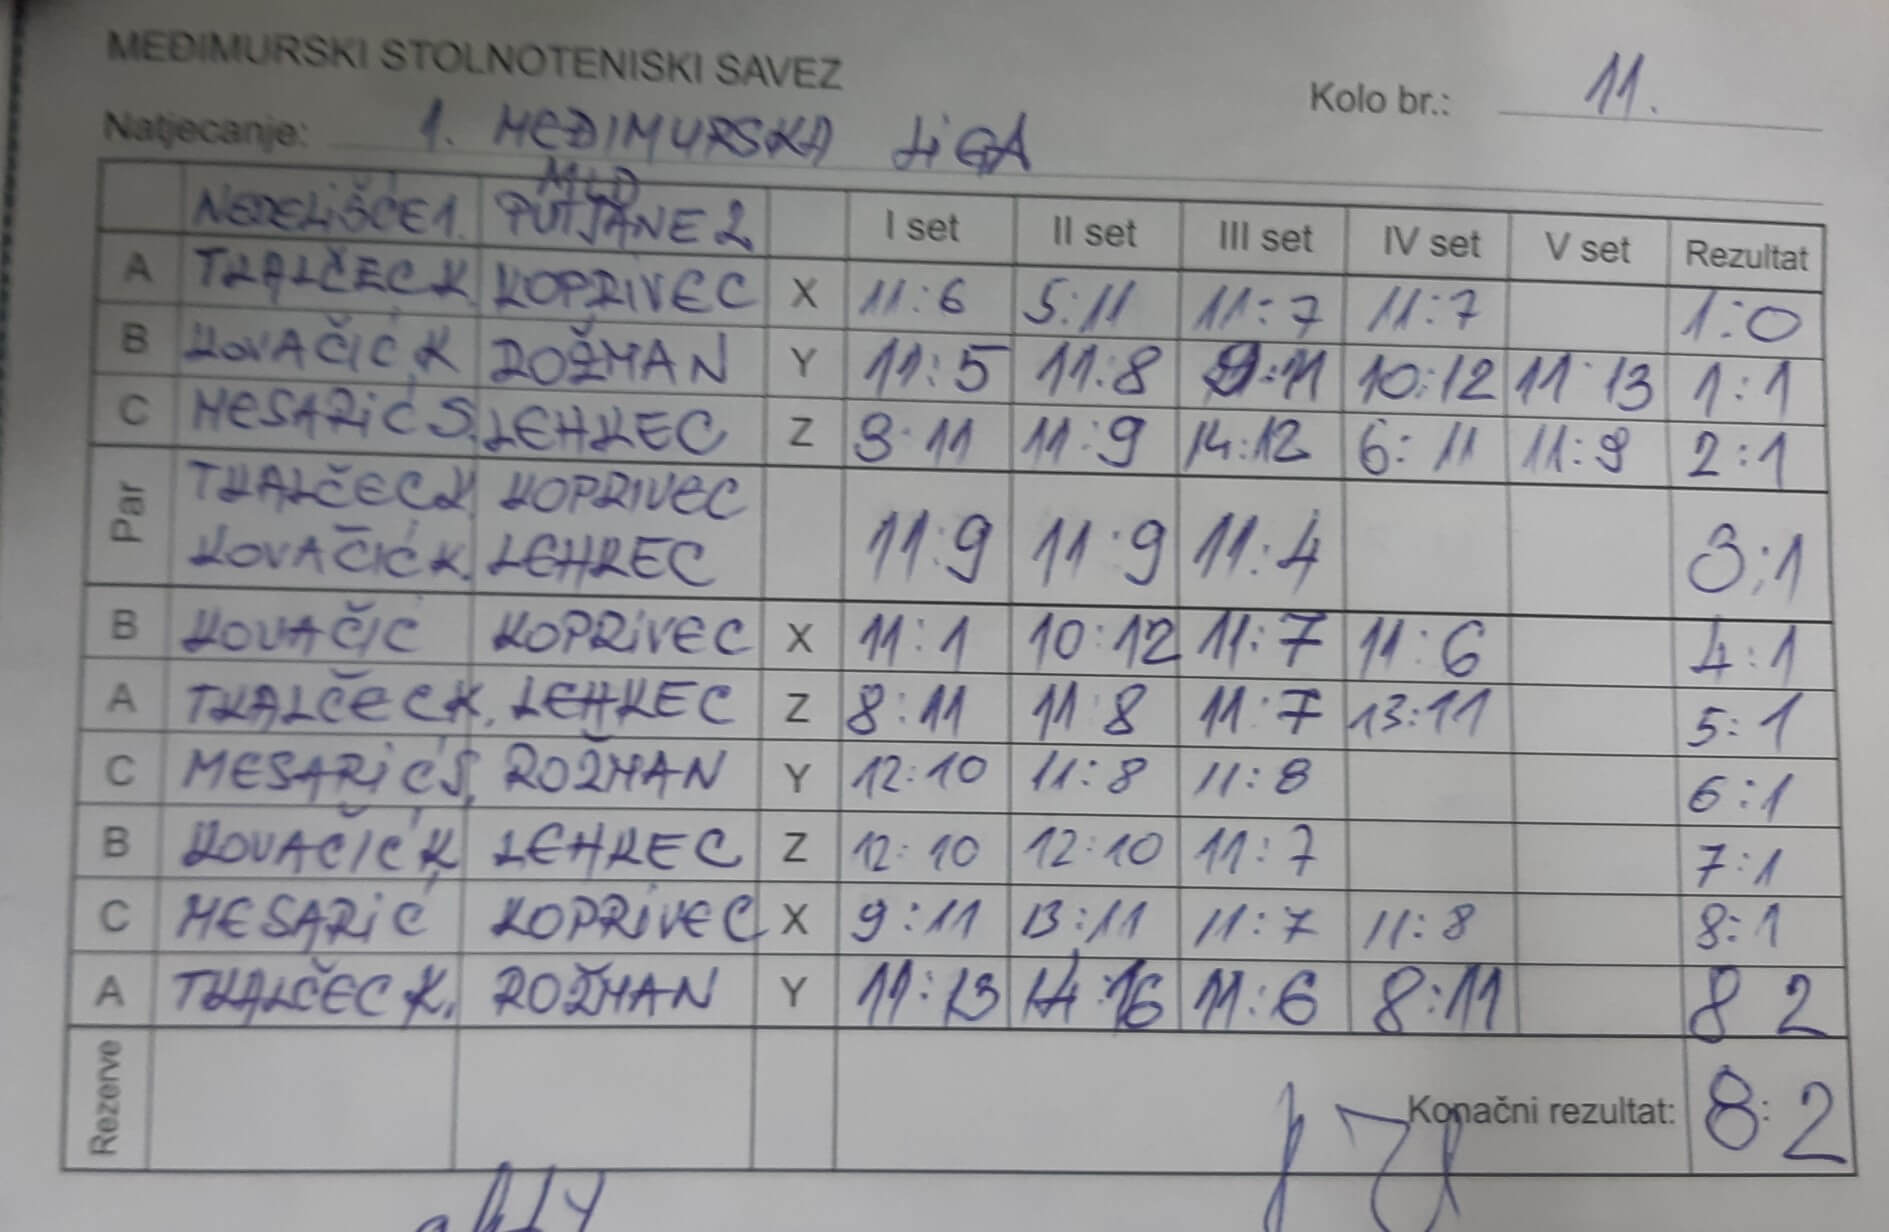 MEĐIMURSKI STOLNOTENISKI SAVEZ
Kolo br.: 11.
Natjecanje: 1. MEĐIMURSKA LiGA
NEDELiŠĆE 1. MLD PUTJANE 2 I set II set III set IV set V set Rezultat
A TKALČEC K. KOPRIVEC X 11:6 5:11 11:7 11:7 1:0
B KOVAČIĆ K ROŽMAN Y 11:5 11:8 9:11 10:12 11 13 1:1
C MESARIĆ S. LEHKEC Z 3:11 11:9 14:12 6:11 11:9 2:1
Par TKALČEC K KOPRIVEC
KOVAČIĆ K. LEHKEC 11:9 11:9 11:4 3:1
B KOVAČIĆ KOPRIVEC X 11:1 10:12 11:7 11:6 4:1
A TKALČEC K. LEHKEC Z 8:11 11 8 11:7 13:11 5:1
C MESARIĆ S. ROŽMAN Y 12:10 11:8 11:8 6:1
B KOVAČIĆ K LEHKEC Z 12:10 12:10 11:7 7:1
C MESARIĆ KOPRIVEC X 9:11 13:11 11:7 11:8 8:1
A TKALČEC K. ROŽMAN Y 11:13 14:16 11:6 8:11 8 2
Rezerve Konačni rezultat: 8:2